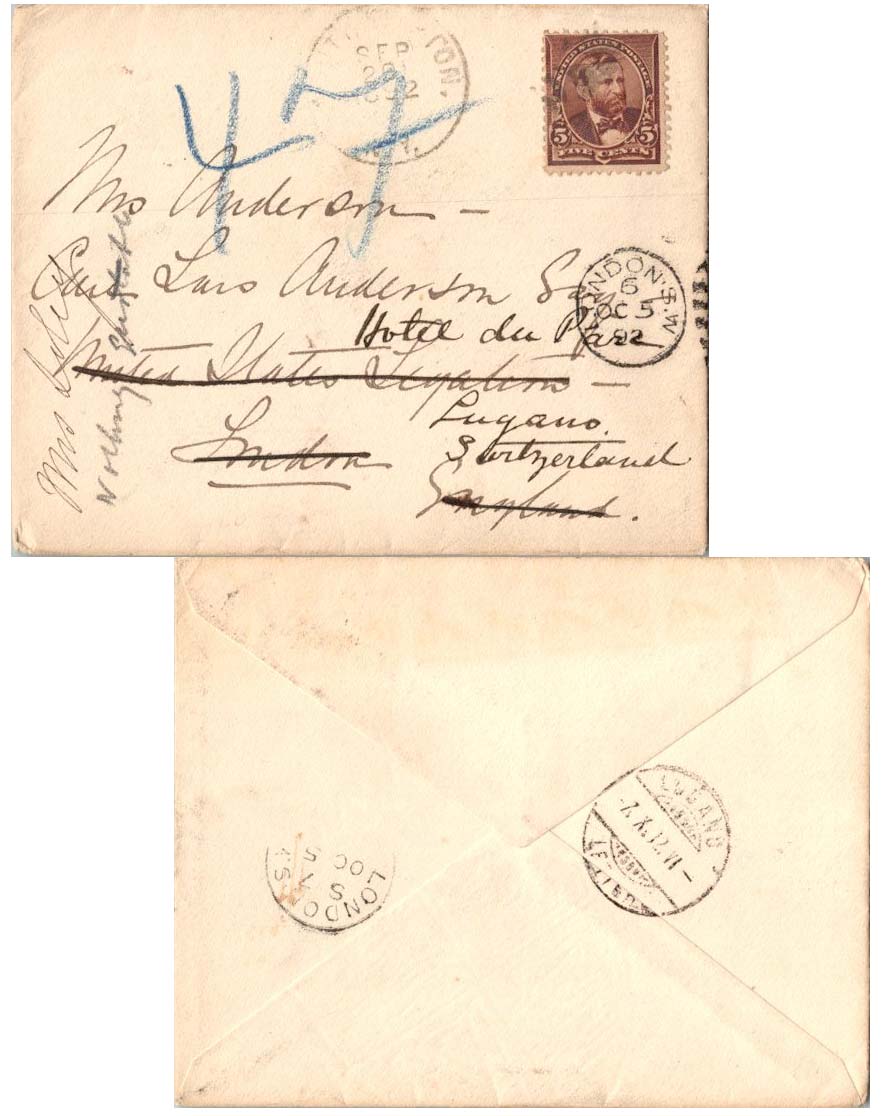 SEP
UNITED STATES POSTAGE
5 5
FIVE CENTS
47
Mrs Anderson -
Care Lars Anderson Esq
Hotel du Parc
United States Legation -
Lugano.
London
Switzerland
England.
LONDON.S.W
6
OC 5
92
Mrs
Nothing
LUGANO
7.X.92.VI-
LETT
LONDON S.W
S
OC 5